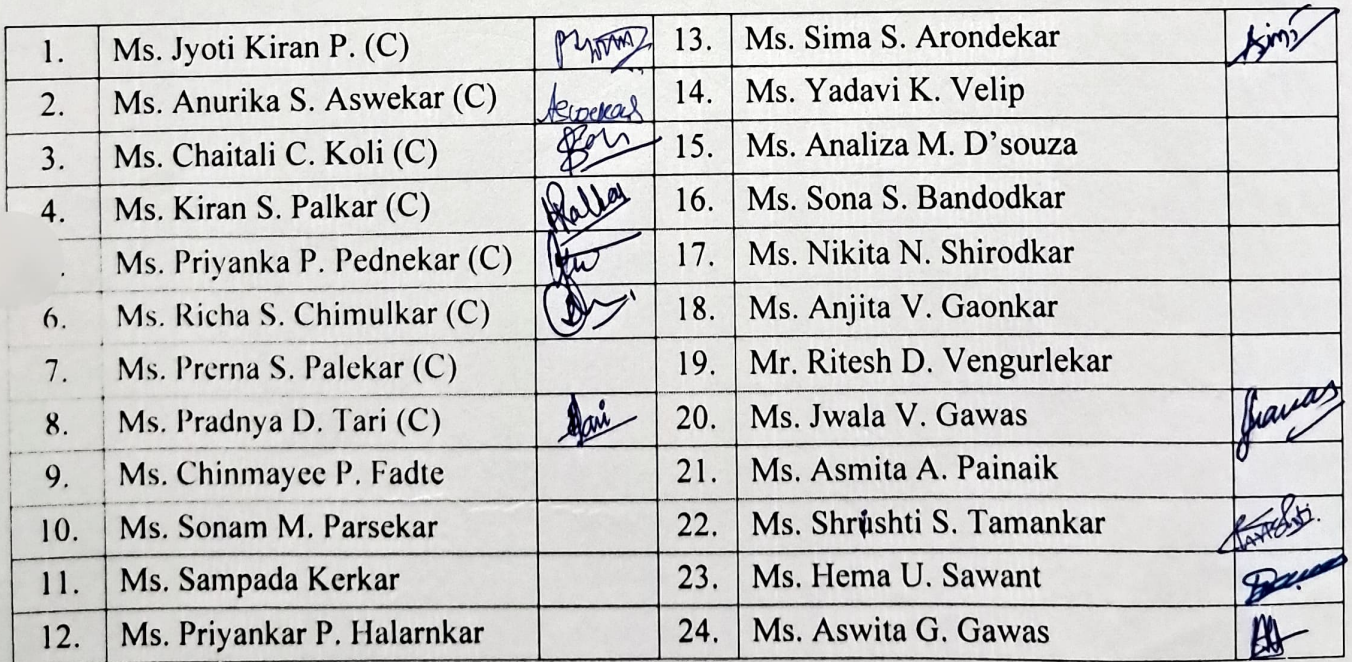 1. Ms. Jyoti Kiran P. (C) 13. Ms. Sima S. Arondekar
2. Ms. Anurika S. Aswekar (C) Aswekar 14. Ms. Yadavi K. Velip
3. Ms. Chaitali C. Koli (C) 15. Ms. Analiza M. D'souza
4. Ms. Kiran S. Palkar (C) 16. Ms. Sona S. Bandodkar
. Ms. Priyanka P. Pednekar (C) 17. Ms. Nikita N. Shirodkar
6. Ms. Richa S. Chimulkar (C) 18. Ms. Anjita V. Gaonkar
7. Ms. Prerna S. Palekar (C) 19. Mr. Ritesh D. Vengurlekar
8. Ms. Pradnya D. Tari (C) 20. Ms. Jwala V. Gawas
9. Ms. Chinmayee P. Fadte 21. Ms. Asmita A. Painaik
10. Ms. Sonam M. Parsekar 22. Ms. Shrushti S. Tamankar
11. Ms. Sampada Kerkar 23. Ms. Hema U. Sawant
12. Ms. Priyankar P. Halarnkar 24. Ms. Aswita G. Gawas